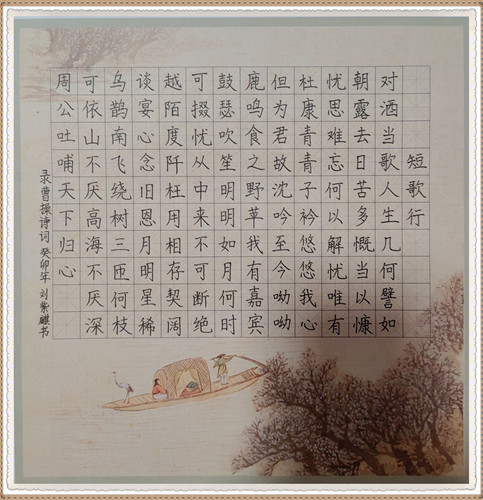 短歌行
对酒当歌人生几何譬如
朝露去日苦多慨当以慷
忧思难忘何以解忧唯有
杜康青青子衿悠悠我心
但为君故沈吟至今呦呦
鹿鸣食之野苹我有嘉宾
鼓瑟吹笙明明如月何时
可掇忧从中来不可断绝
越陌度阡枉用相存契阔
谈宴心念旧恩月明星稀
乌鹊南飞绕树三匝何枝
可依山不厌高海不厌深
周公吐哺天下归心
录曹操诗词 癸卯年 刘紫麒书